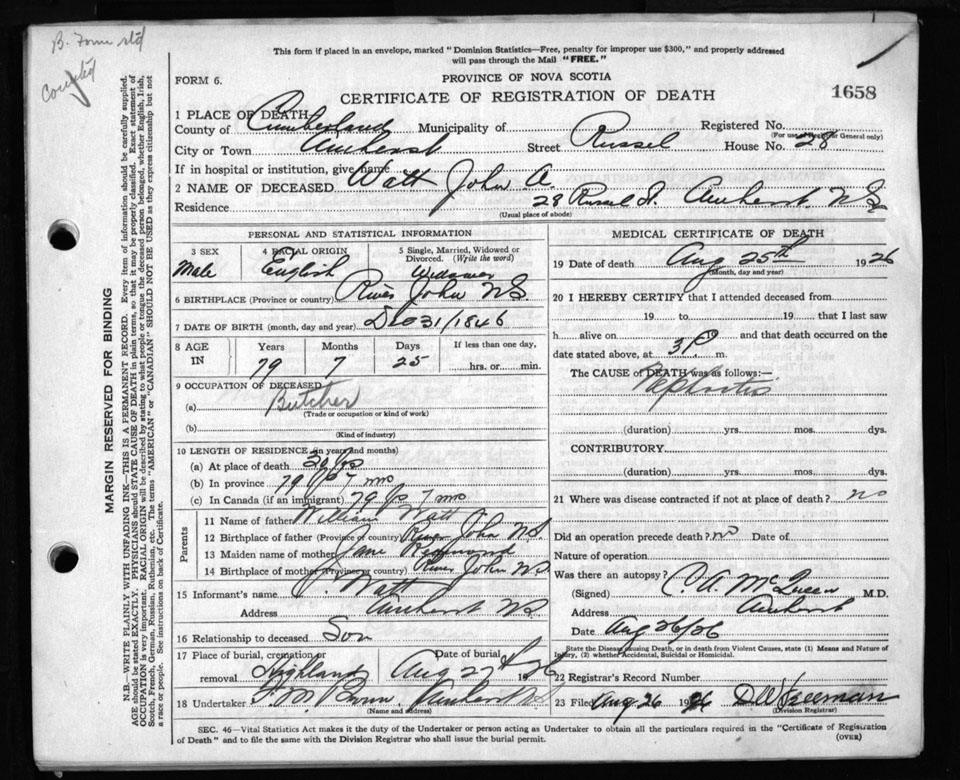 B. Form std
Couplet
This form if placed in an envelope, marked "Dominion Statistics—Free, penalty for improper use $300," and properly addressed
will pass through the Mail "FREE."
FORM 6.
PROVINCE OF NOVA SCOTIA
CERTIFICATE OF REGISTRATION OF DEATH
1658
1 PLACE OF DEATH
County of Cumberland Municipality of Registered No.
(For use of Registrar General only)
City or Town Amherst Street Russel House No. 28
If in hospital or institution, give name
2 NAME OF DECEASED Watt John A.
Residence 28 Russel St. Amherst NS
(Usual place of abode)
PERSONAL AND STATISTICAL INFORMATION
3 SEX 4 RACIAL ORIGIN 5 Single, Married, Widowed or
Divorced. (Write the word)
Male English Widower
6 BIRTHPLACE (Province or country) River John NS.
7 DATE OF BIRTH (month, day and year) Dec 31/1846
8 AGE IN Years Months Days If less than one day,
79 7 25 hrs. or min.
9 OCCUPATION OF DECEASED
(a) Butcher
(Trade or occupation or kind of work)
(b)
(Kind of industry)
10 LENGTH OF RESIDENCE (in years and months)
(a) At place of death 20 yrs
(b) In province 79 yrs 7 mos
(c) In Canada (if an immigrant) 79 yrs 7 mos
Parents
11 Name of father William Watt
12 Birthplace of father (Province or country) River John NS.
13 Maiden name of mother Jane Redmond
14 Birthplace of mother (Province or country) River John NS.
15 Informant's name J. Watt
Address Amherst NS
16 Relationship to deceased Son
17 Place of burial, cremation or Date of burial
removal Highland Aug 27th 1926
18 Undertaker Amherst NS
(Name and address)
MEDICAL CERTIFICATE OF DEATH
19 Date of death Aug 25th 1926
(Month, day and year)
20 I HEREBY CERTIFY that I attended deceased from
19 to 19 that I last saw
h alive on and that death occurred on the
date stated above, at 3 P. m.
The CAUSE of DEATH was as follows:—
Nephritis
(duration) yrs. mos. dys.
CONTRIBUTORY.
(duration) yrs. mos. dys.
21 Where was disease contracted if not at place of death? no
Did an operation precede death? no Date of
Nature of operation
Was there an autopsy?
(Signed) C. A. McQueen M.D.
Address Amherst
Date Aug 26/26
State the Disease causing Death, or in death from Violent Causes, state (1) Means and Nature of
Injury, (2) whether Accidental, Suicidal or Homicidal.
22 Registrar's Record Number
23 Filed Aug 26 1926 Freeman
(Division Registrar)
SEC. 46—Vital Statistics Act makes it the duty of the Undertaker or person acting as Undertaker to obtain all the particulars required in the "Certificate of Registration
of Death" and to file the same with the Division Registrar who shall issue the burial permit.
(OVER)
MARGIN RESERVED FOR BINDING
N.B.—WRITE PLAINLY WITH UNFADING INK—THIS IS A PERMANENT RECORD. Every item of information should be carefully supplied.
AGE should be stated EXACTLY. PHYSICIANS should STATE CAUSE OF DEATH in plain terms, so that it may be properly classified. Exact statement of
OCCUPATION is very important. RACIAL ORIGIN will be described by stating to what people or tongue the deceased person belonged, whether English, Irish,
Scotch, French, German, Russian, Ruthenian, etc. The terms "AMERICAN" or "CANADIAN" SHOULD NOT BE USED as they express citizenship but not
a race or people. See instructions on back of Certificate.